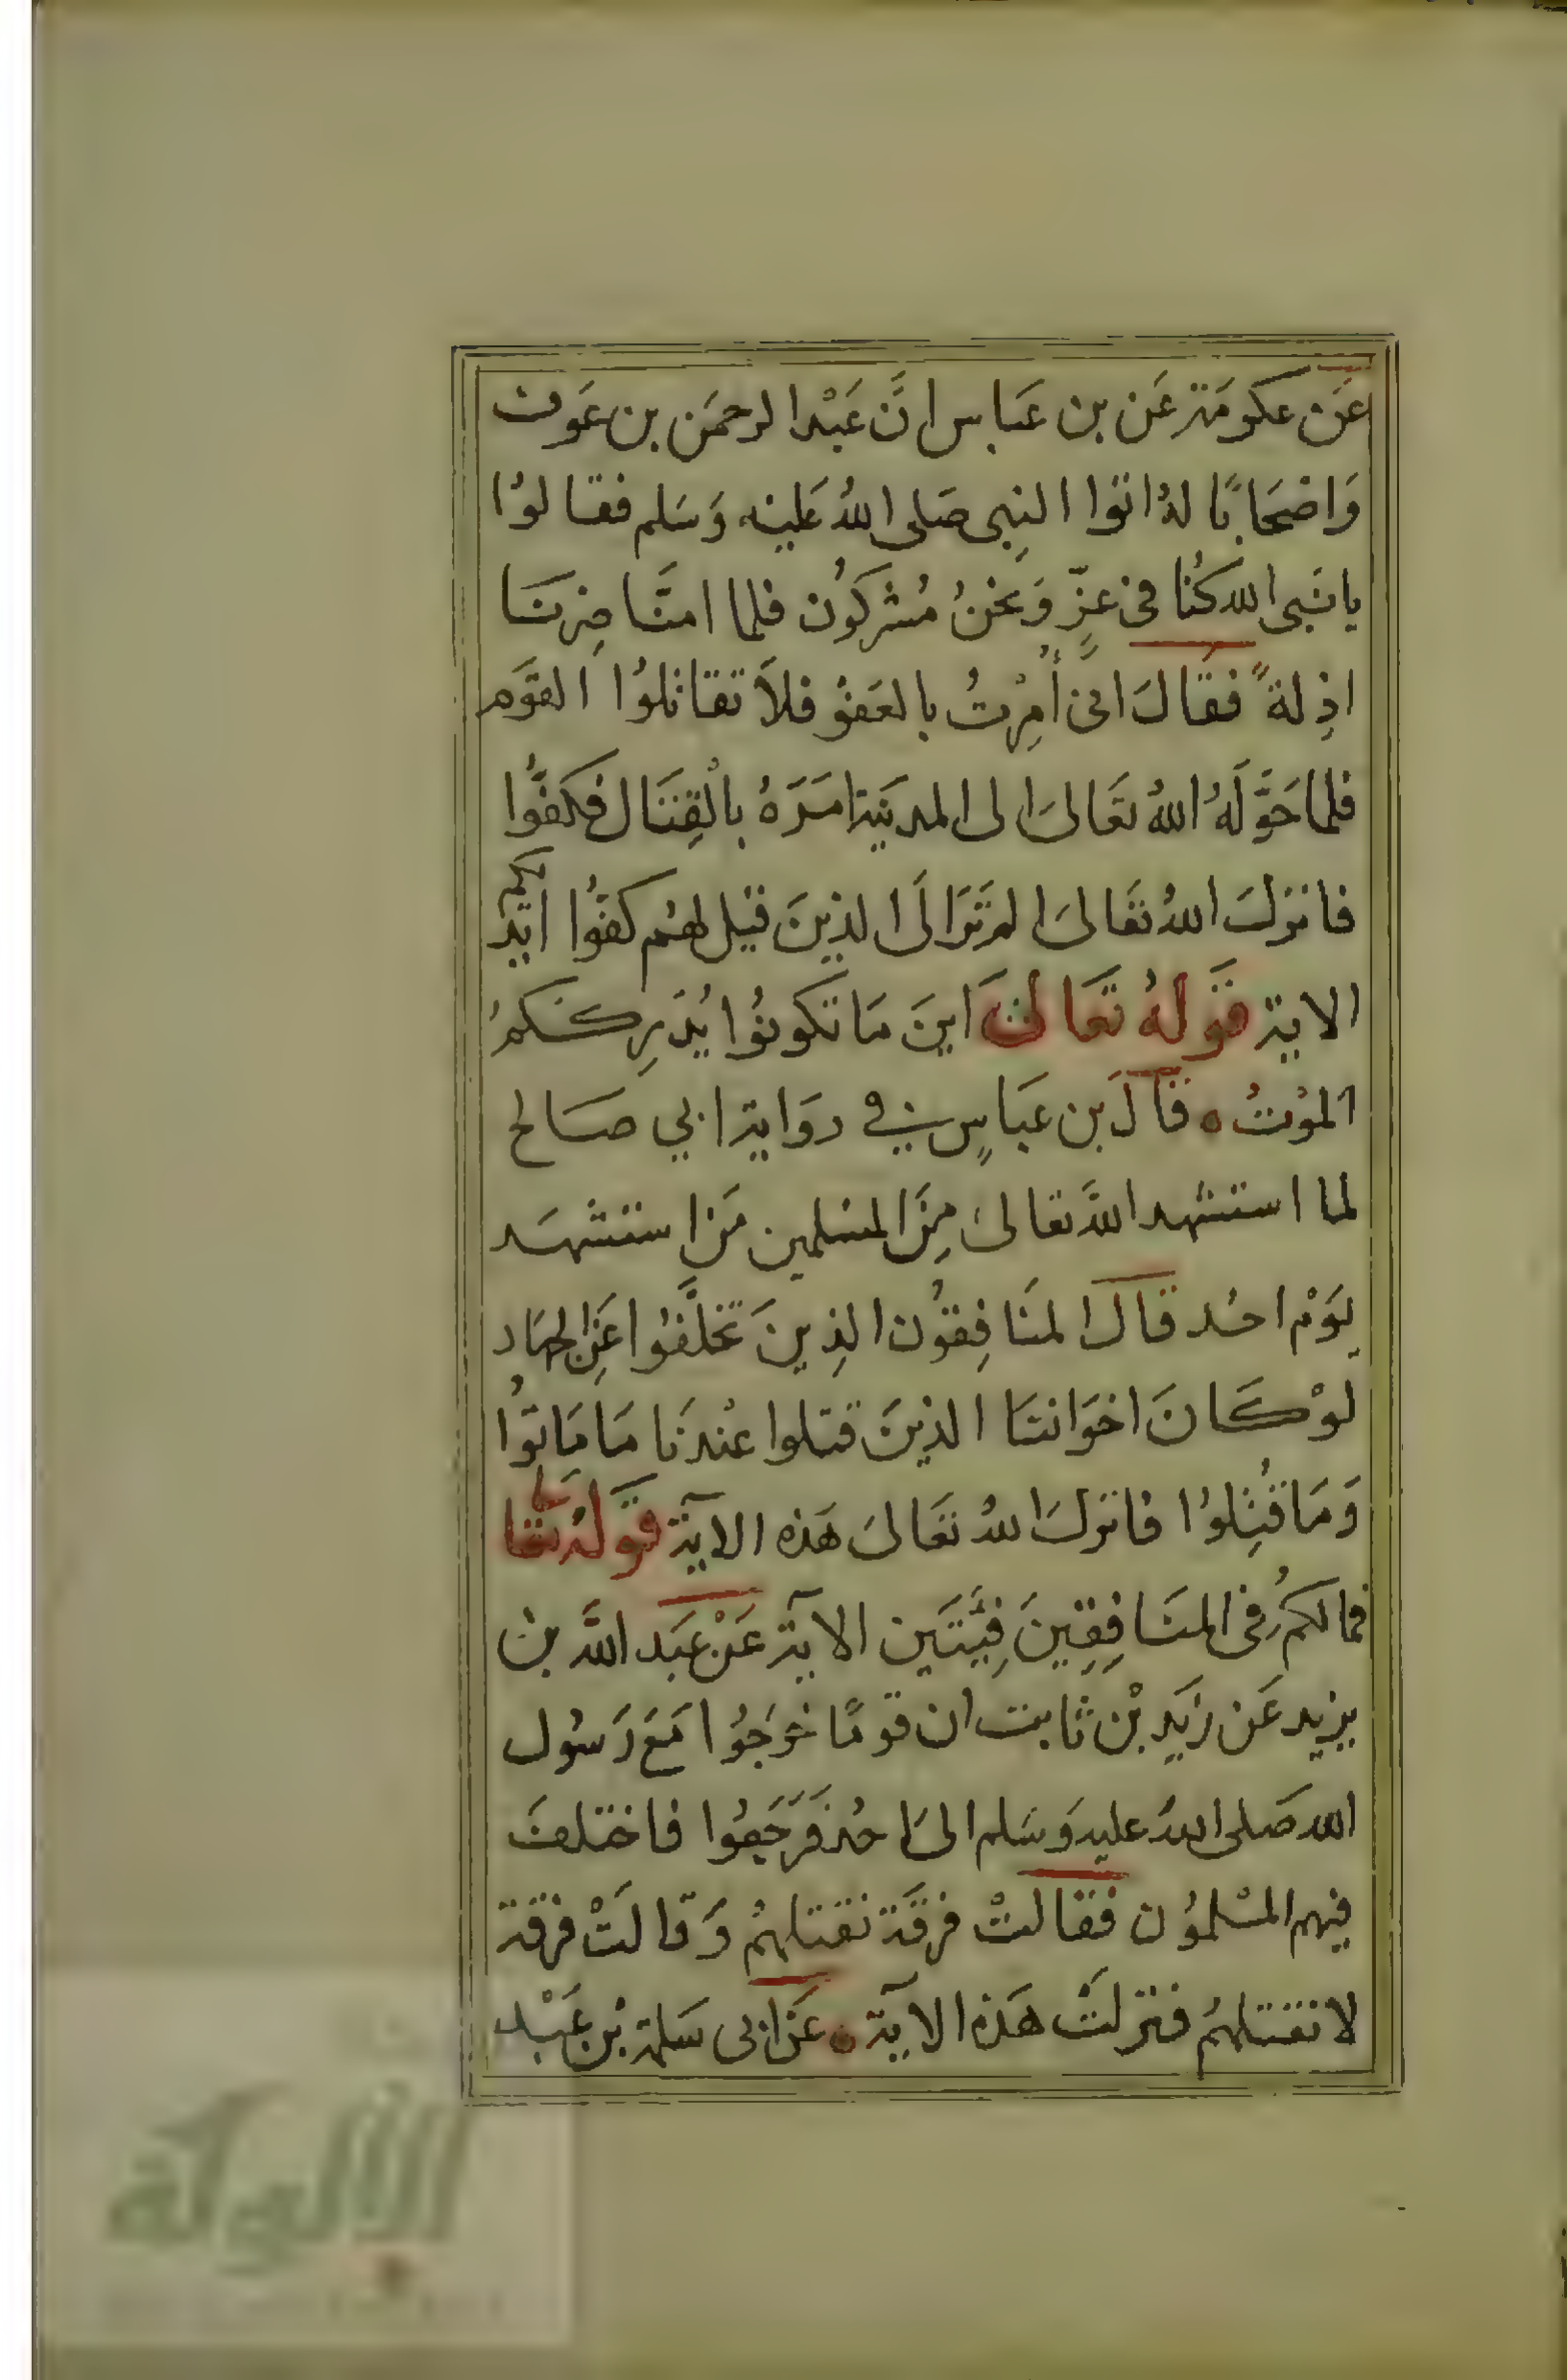 عَن عكومَة عَن بن عَباس انَّ عَبْد الرحمَن بن عَوف
وَاصْحَابًا لهُ اتوا النِبى صَلى اللهُ عَليْه وَسَلم فقالوُا
يا نَبى الله كُنا فى عِزٍّ وَنحنُ مُشركوُن فلما امنَّا صِرنَا
اذِلةً فقَالَ انى أُمِرْتُ بالعَفوْ فلاَ تقاتلوُا القوَم
فلما حَوَّلَهُ اللهُ تعَالىَ الى المدينَة امَرَهُ بالْقِتَال فكفُّوا
فانزلَ اللهُ تعَالىَ الم تَرَ الَى الذِينَ قيْل لهُم كفُّوا ايْديكم
الاية قوَلهُ تَعَالىَ اينَ مَا تَكونوُا يُدْرِككمُ
الموْتُ ه قاَلَ بن عَباسٍ في روَاية ابي صَالح
لما استشهد اللهَ تعالىَ مِنَ المسْلمين مَن استشهَد
يوَمْ احُد قَالَ المنَافِقوُن الذِينَ تخلَّفوُا عَنِ الجهَاد
لوْ كَانَ اخوَاننَا الذينَ قتلوا عنْدنَا مَا مَاتوُا
وَمَا قُتِلوُا فانزلَ اللهُ تعَالىَ هَذه الاَية قوَلهُ تعَالى
فما لكمُ فى المنَافِقِينَ فِئَتَين الاَية عَنْ عَبَد اللهَ بن
يزيد عَن زَيَدِ بْن ثابت ان قومًا خرَجوُا مَعَ رَسُول
الله صَلى اللهُ عليه وَسَلم الىَ احُد فَرَجَعوُا فاختلفَ
فيهم المسْلموُن فقالتْ فرقَة نقتلهمُ وَقالَتْ فرقة
لا نقتلهمُ فنزلَتْ هَذه الاَية ه عَن ابى سَلمة بْن عَبْد
الألوكة